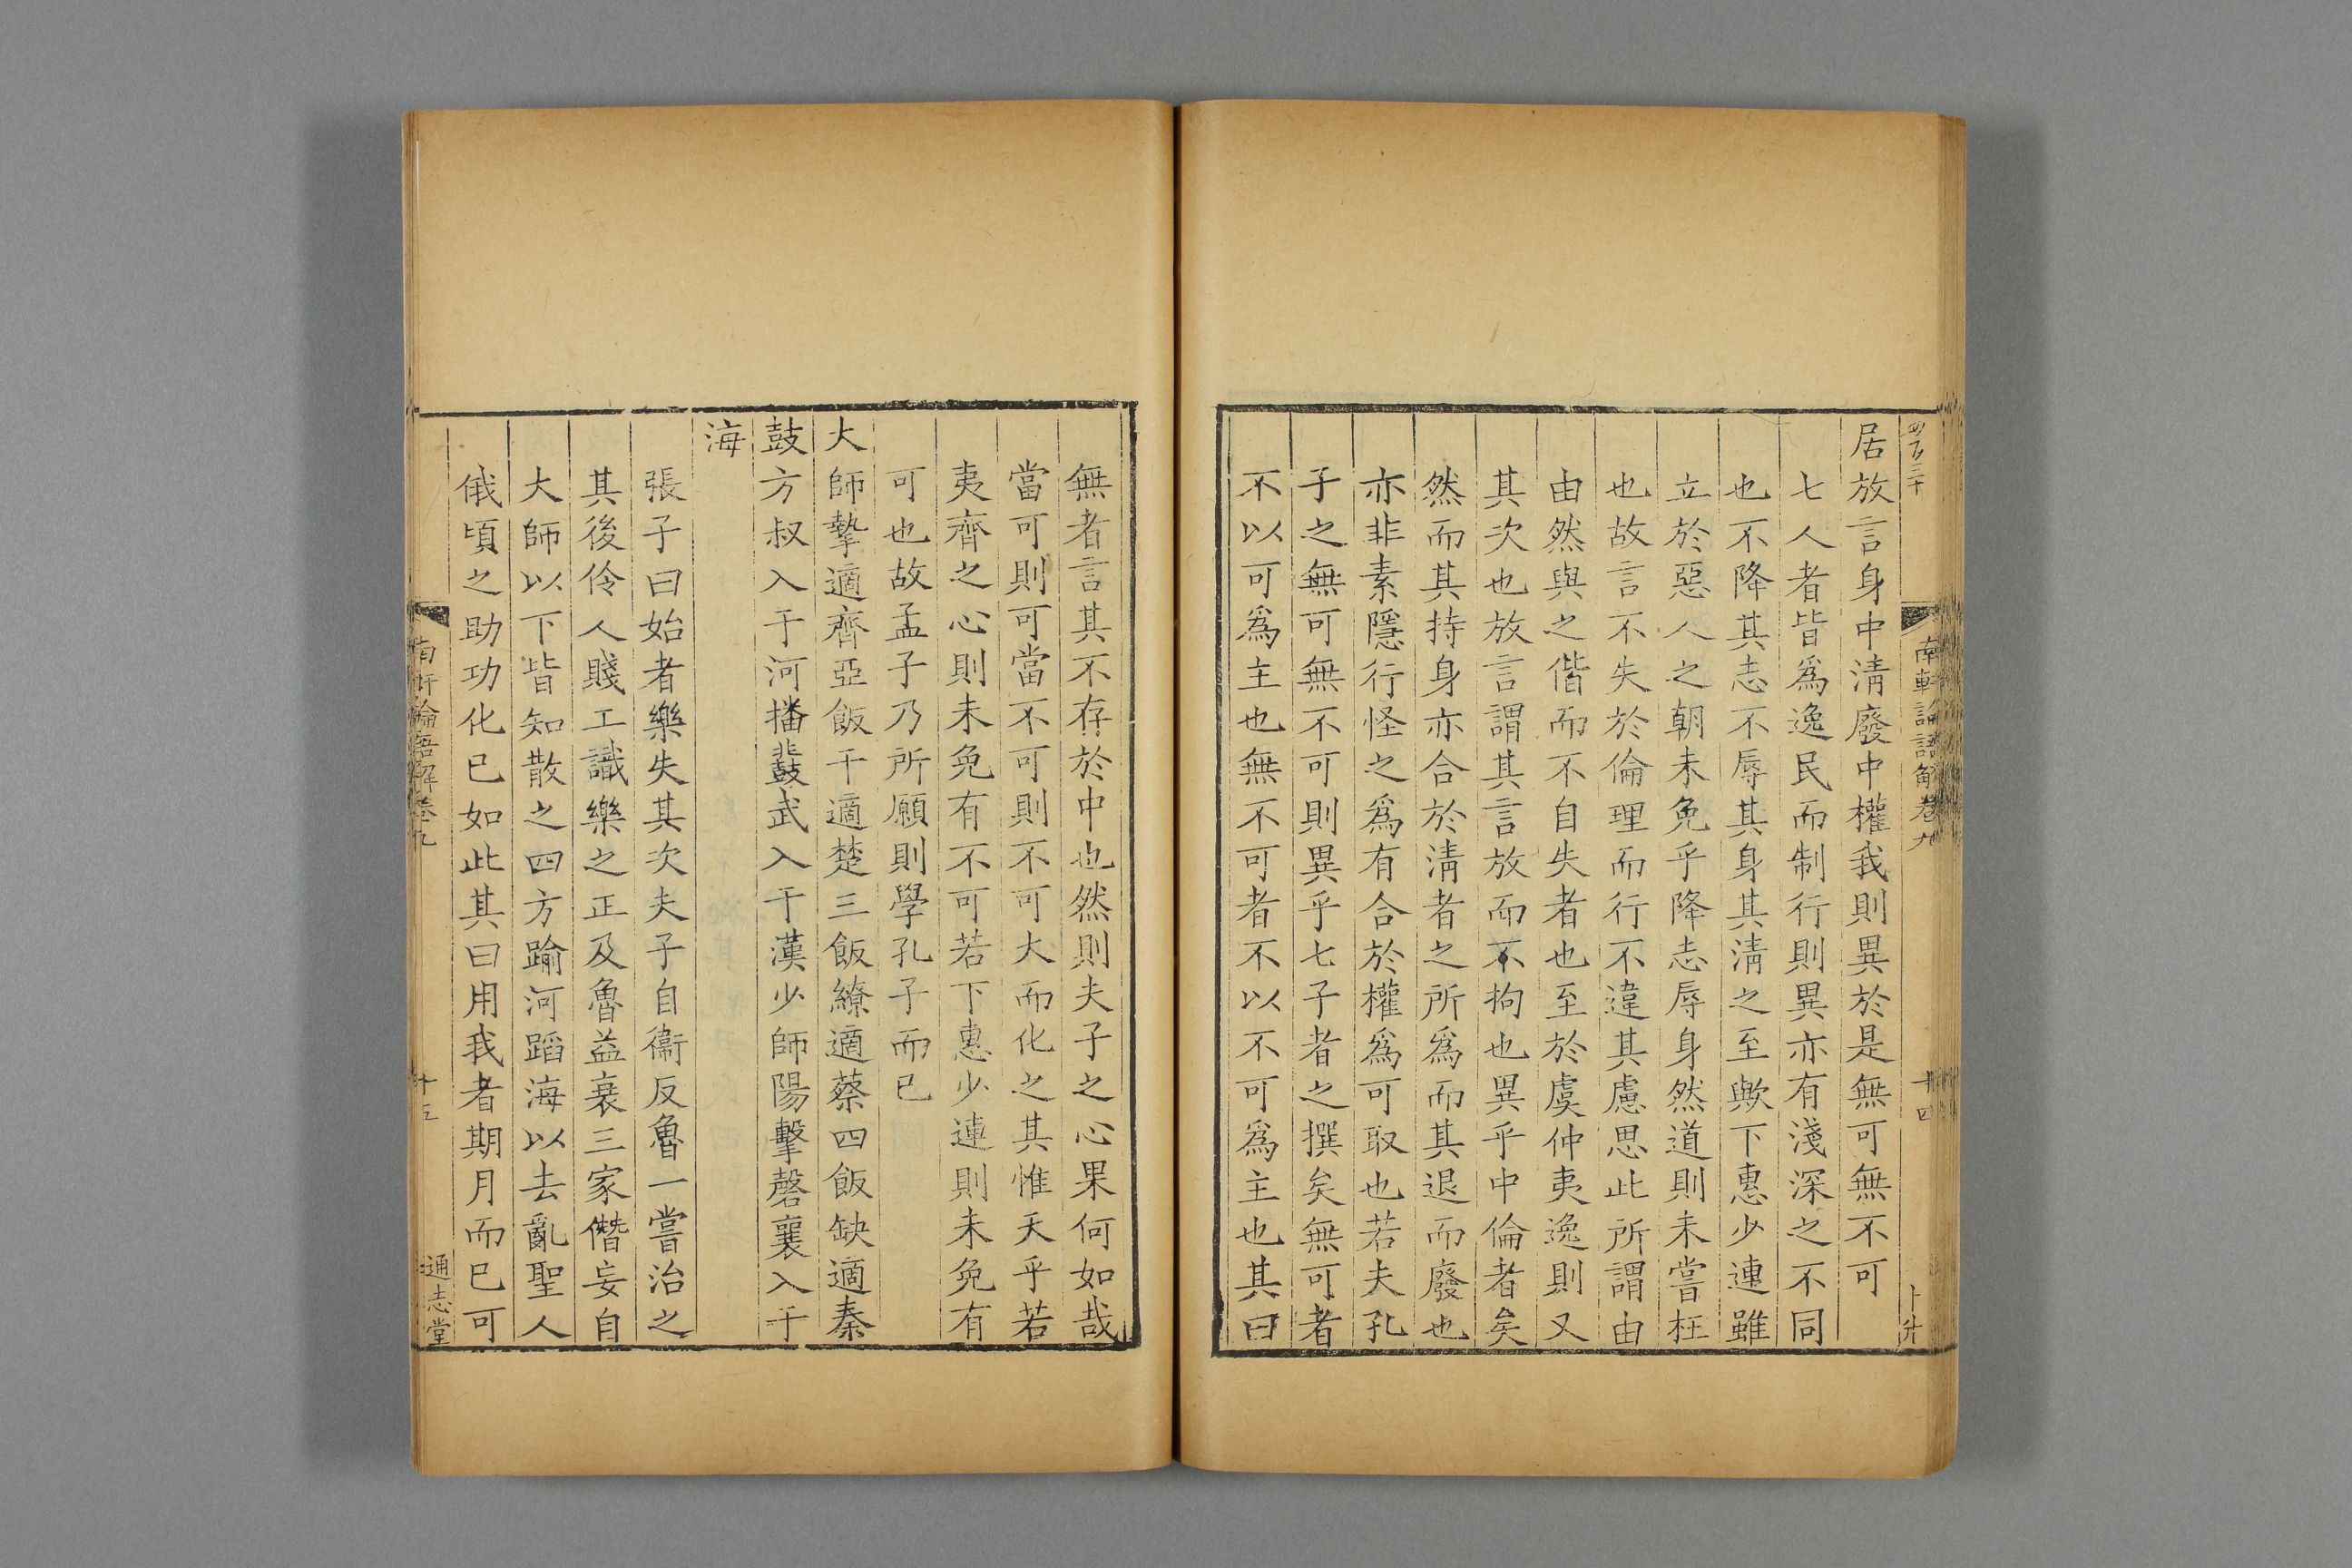 居放言身中清廢中權我則異於是無可無不可
七人者皆爲逸民而制行則異亦有淺深之不同
也不降其志不辱其身其清之至歟下惠少連雖
立於惡人之朝未免乎降志辱身然道則未嘗枉
也故言不失於倫理而行不違其慮思此所謂由
由然與之偕而不自失者也至於虞仲夷逸則又
其次也放言謂其言放而不拘也異乎中倫者矣
然而其持身亦合於清者之所爲而其退而廢也
亦非素隱行怪之爲有合於權爲可取也若夫孔
子之無可無不可則異乎七子者之撰矣無可者
不以可爲主也無不可者不以不可爲主也其曰
南軒論語解卷九
十四
無者言其不存於中也然則夫子之心果何如哉
當可則可當不可則不可大而化之其惟天乎若
夷齊之心則未免有不可若下惠少連則未免有
可也故孟子乃所願則學孔子而已
大師摯適齊亞飯干適楚三飯繚適蔡四飯缺適秦
鼓方叔入于河播鼗武入于漢少師陽擊磬襄入于
海
張子曰始者樂失其次夫子自衞反魯一嘗治之
其後伶人賤工識樂之正及魯益衰三家僭妄自
大師以下皆知散之四方踰河蹈海以去亂聖人
俄頃之助功化已如此其曰用我者期月而已可
南軒論語解卷九
十五
通志堂